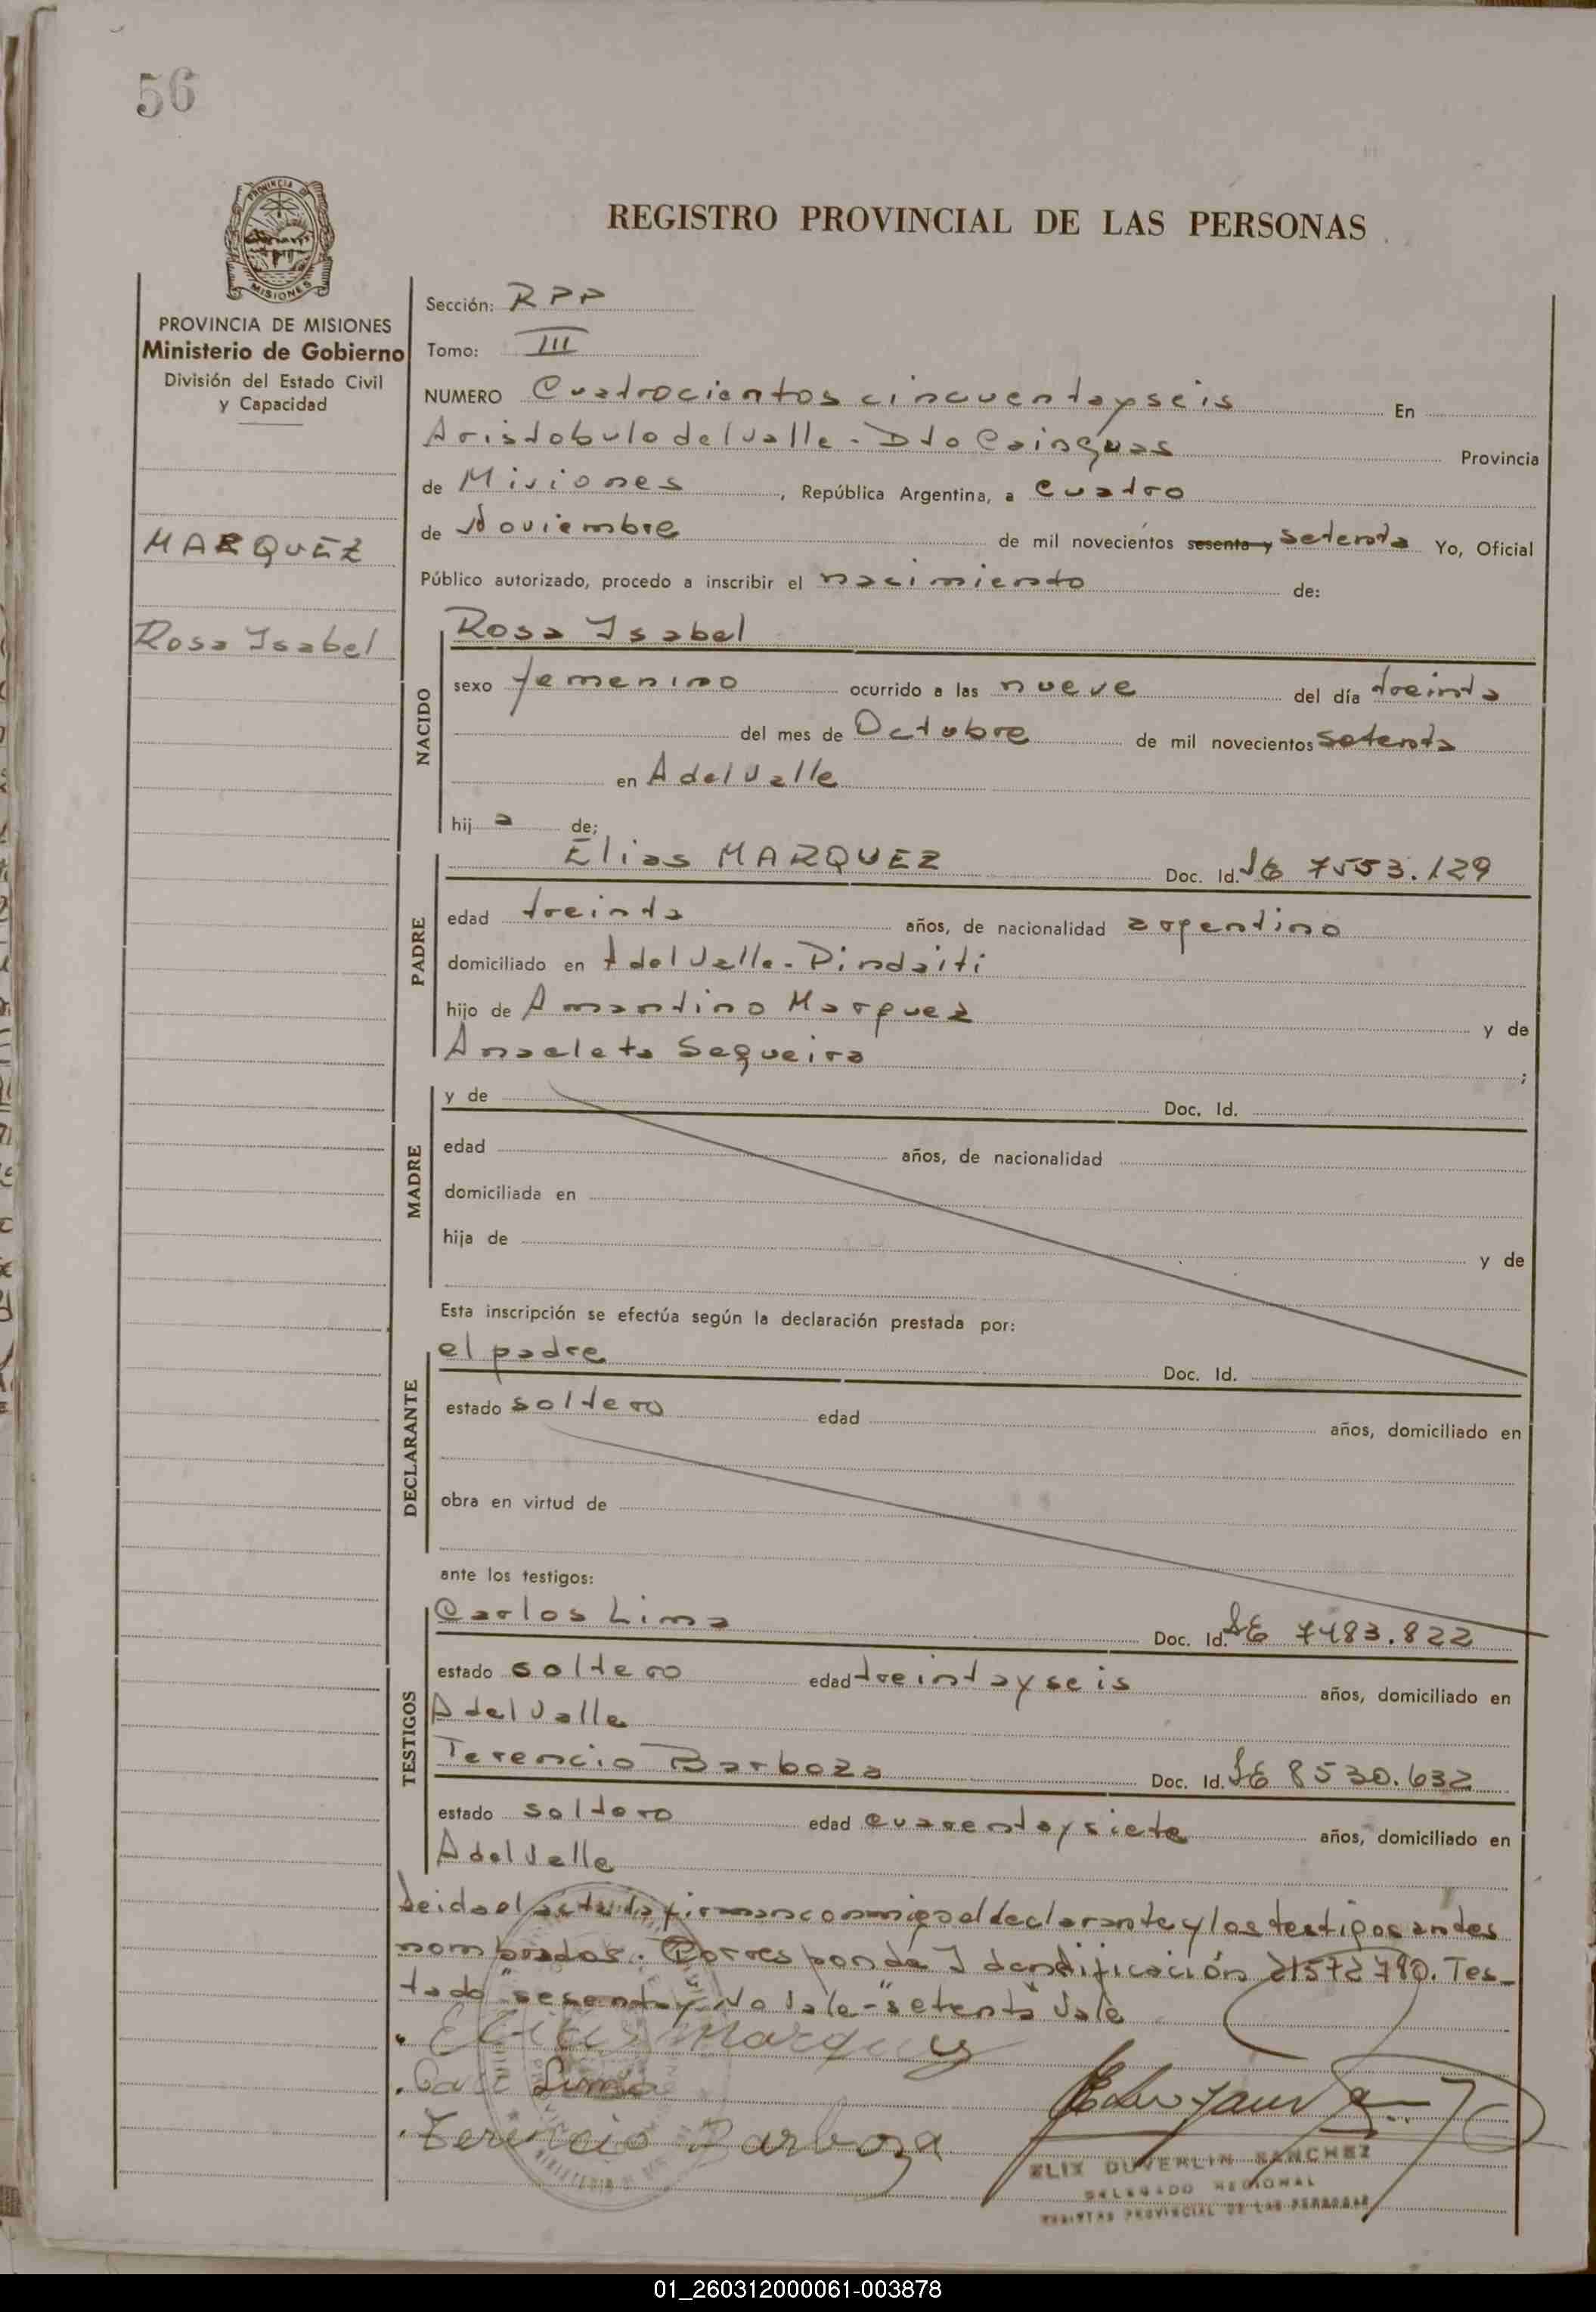 56
PROVINCIA DE
MISIONES
REGISTRO PROVINCIAL DE LAS PERSONAS
PROVINCIA DE MISIONES
Ministerio de Gobierno
División del Estado Civil
y Capacidad
MARQUEZ
Rosa Isabel
Sección: RPP
Tomo: III
NUMERO Cuatrocientos cincuentayseis En
Aristobulo del Valle - Dto Cainguas Provincia
de Misiones, República Argentina, a cuatro
de Noviembre de mil novecientos sesenta y setenta Yo, Oficial
Público autorizado, procedo a inscribir el nacimiento de:
NACIDO
Rosa Isabel
sexo femenino ocurrido a las nueve del día treinta
del mes de Octubre de mil novecientos setenta
en A del Valle
hij a de;
PADRE
Elias MARQUEZ Doc. Id. LE 7553.129
edad treinta años, de nacionalidad argentino
domiciliado en A del Valle - Pindaiti
hijo de Amantino Marquez y de
Anacleta Sequeira ;
MADRE
y de Doc. Id.
edad años, de nacionalidad
domiciliada en
hija de y de
Esta inscripción se efectúa según la declaración prestada por:
DECLARANTE
el padre Doc. Id.
estado soltero edad años, domiciliado en
obra en virtud de
ante los testigos:
TESTIGOS
Carlos Lima Doc. Id. LE 7483.822
estado soltero edad treintayseis años, domiciliado en
A del Valle
Terencio Barboza Doc. Id. LE 8530.632
estado soltero edad cuarentaysiete años, domiciliado en
A del Valle
Leida el acta la firman conmigo el declarante y los testigos antes
nombrados. Corresponde Identificación 21572790. Tes-
tado "sesenta y" No Vale - "setenta" Vale
Elias Marquez
Lima
Terencio Barboza
ELIX DUVERLIN SANCHEZ
DELEGADO REGIONAL
REGISTRO PROVINCIAL DE LAS PERSONAS
01_260312000061-003878